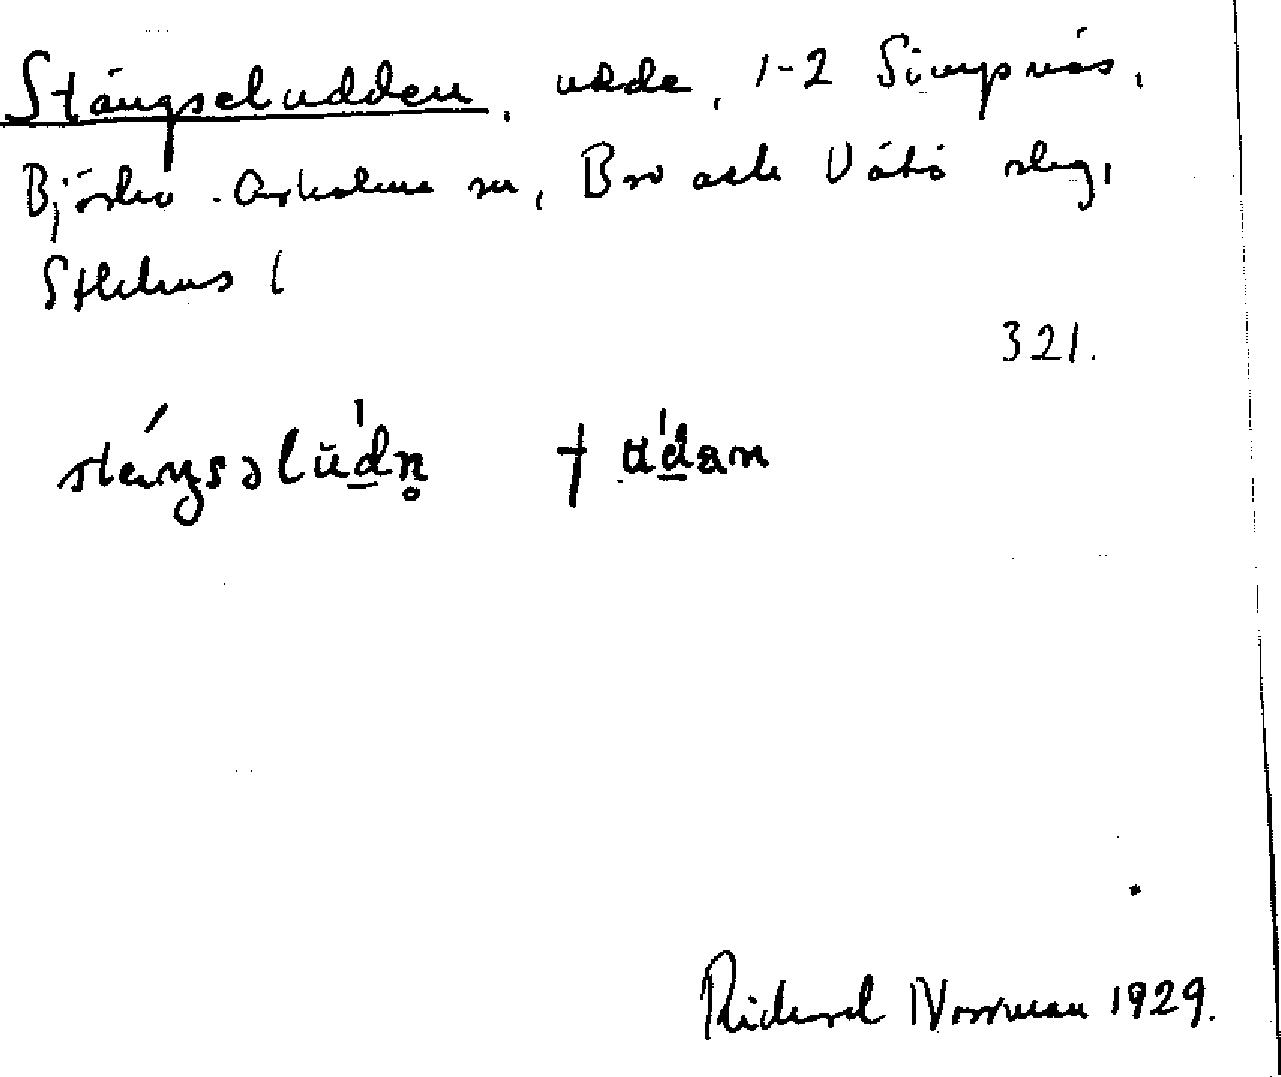 Stängseludden, udde, 1-2 Simpnäs,
Björkö-Arholma sn, Bro och Vätö skg,
Sthlms l
321.
stäŋsəlúdn̥ † údan
Richard Norrman 1929.